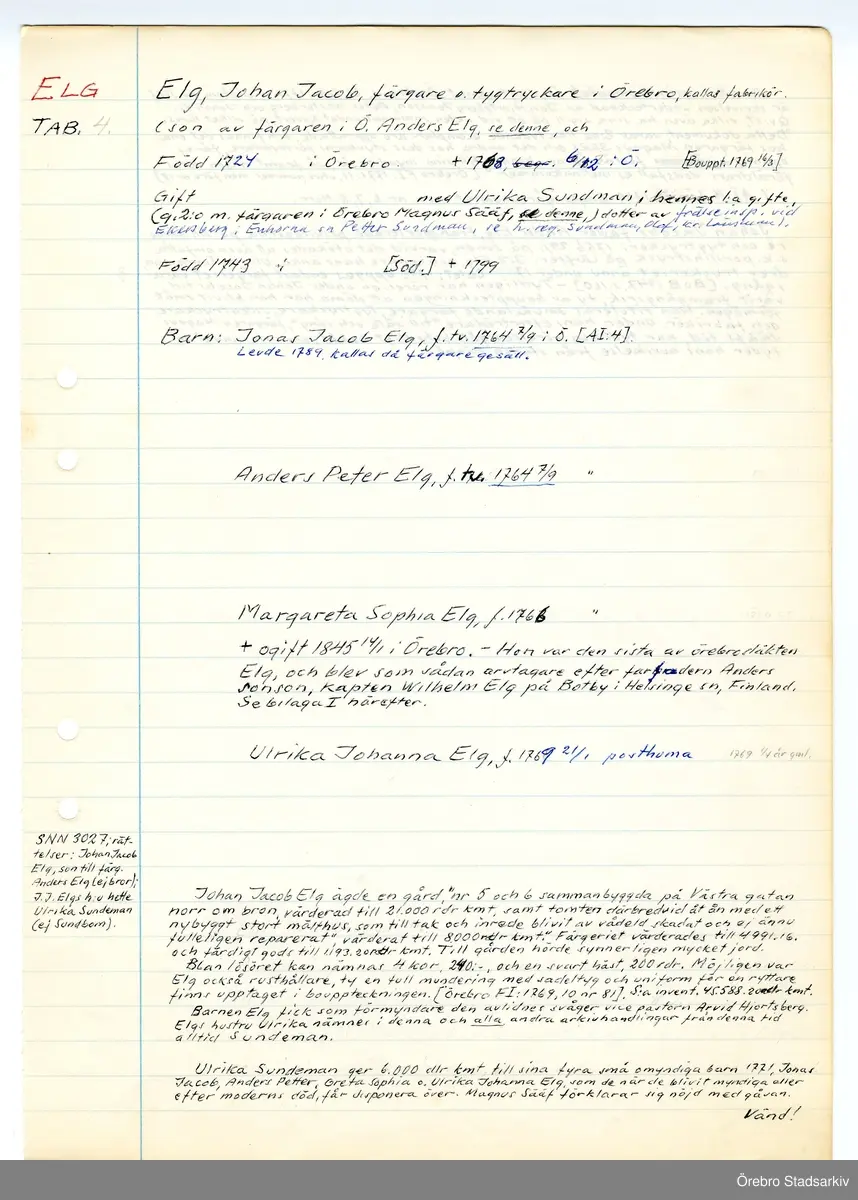 ELG
TAB. 4.
Elg, Johan Jacob, färgare o. tygtryckare i Örebro, kallas fabrikör.
(son av färgaren i Ö. Anders Elg, se denne, och
Född 1724 i Örebro. + 1768, begr. 6/12 i Ö. [Bouppt. 1769 16/3]
Gift med Ulrika Sundman i hennes 1:a gifte,
(g. 2:o m. färgaren i Örebro Magnus Sääf, se denne,) dotter av frälseinsp. vid
Ekersberg i Enhörna sn Petter Sundman, se h. reg. Sundman, Olof,
Född 1743 i [Söd.] + 1799
Barn: Jonas Jacob Elg, f. tv. 1764 7/9 i Ö. [AI:4].
Levde 1789, kallas då färgaregesäll.
Anders Peter Elg, f. tv. 1764 7/9 "
Margareta Sophia Elg, f. 1766 "
+ ogift 1845 14/1 i Örebro. - Hon var den sista av örebrosläkten
Elg, och blev som sådan arvtagare efter farbrodern Anders
sonson, kapten Wilhelm Elg på Botby i Helsinge sn, Finland.
Se bilaga I härefter.
Ulrika Johanna Elg, f. 1769 21/1 posthuma 1769 1/4 år gml.
SNN 3027; rät-
telser: Johan Jacob
Elg, son till färg.
Anders Elg (ej bror);
J.J. Elgs h:u hette
Ulrika Sundeman
(ej Sundbom).
Johan Jacob Elg ägde en gård, "nr 5 och 6 sammanbyggda på Västra gatan
norr om bron, värderad till 21.000 rdr kmt, samt tomten därbredvid åt ån med ett
nybyggt stort mälthus, som till tak och inrede blivit av vådeld skadat och ej ännu
fulleligen reparerat" värderat till 8000 dlr kmt." Färgeriet värderades till 4991.16.
och färdigt gods till 1193.20 dlr kmt. Till gården hörde synnerligen mycket jord.
Blan lösöret kan nämnas 4 kor, 240:-, och en svart häst, 200 rdr. Möjligen var
Elg också rusthållare, ty en full mundering med sadeltyg och uniform för en ryttare
finns upptaget i bouppteckningen. [Örebro FI:1769, 10 nr 81]. S:a invent. 45.588.20 dlr kmt.
Barnen Elg fick som förmyndare den avlidnes svåger vice pastorn Arvid Hjortsberg.
Elgs hustru Ulrika nämnes i denna och alla andra arkivhandlingar från denna tid
alltid Sundeman.
Ulrika Sundeman ger 6.000 dlr kmt till sina fyra små omyndiga barn 1771, Jonas
Jacob, Anders Petter, Greta Sophia o. Ulrika Johanna Elg, som de när de blivit myndiga eller
efter moderns död, får disponera över. Magnus Sääf förklarar sig nöjd med gåvan.
Vänd!
Örebro Stadsarkiv